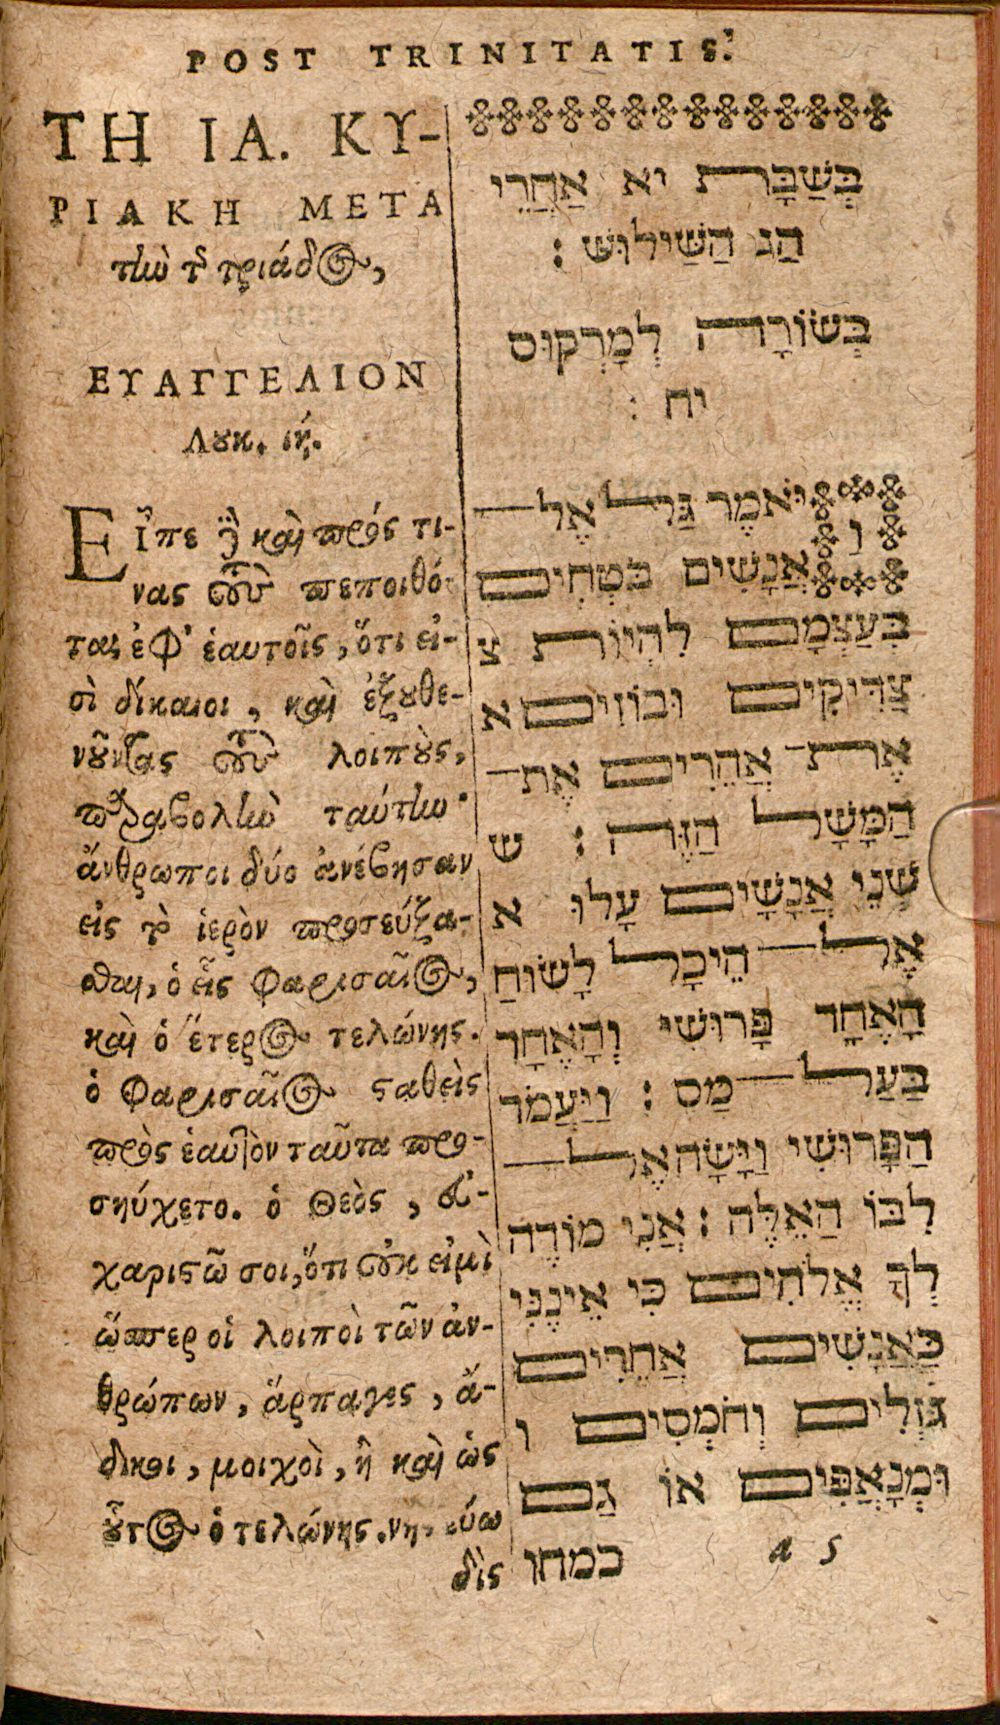 POST TRINITATIS.
ΤΗ ΙΑ. ΚΥ-
ΡΙΑΚΗ ΜΕΤΑ
τὴν τ̃ τριάδος,
ΕΥΑΓΓΕΛΙΟΝ
Λουκ. ιή.
Εἶπε δὲ καὶ πρός τι-
νας τοὺς πεποιθό-
τας ἐφ' ἑαυτοῖς, ὅτι εἰ-
σὶ δίκαιοι, καὶ ἐξουθε-
νοῦντας τοὺς λοιποὺς,
παραβολὴν ταύτην·
ἄνθρωποι δύο ἀνέβησαν
εἰς τὸ ἱερὸν προσεύξα-
σθαι, ὁ εἷς Φαρισαῖος,
καὶ ὁ ἕτερος τελώνης.
ὁ Φαρισαῖος σταθεὶς
πρὸς ἑαυτὸν ταῦτα προ-
σηύχετο. ὁ Θεὸς, εὐ-
χαριστῶ σοι, ὅτι οὐκ εἰμὶ
ὥσπερ οἱ λοιποὶ τῶν ἀν-
θρώπων, ἅρπαγες, ἄ-
δικοι, μοιχοὶ, ἢ καὶ ὡς
οὗτος ὁ τελώνης. νη-
δὶς
בְּשַׁבָּת יא אַחֲרֵי
הַג הַשִּׁילוּשׁ :
בְּשׂוֹרָה לְמָרְקוּס
יח :
וַיֹּאמֶר גַּל אֶל
אֲנָשִׁים בֹּטְחִים
בְּעַצְמָם לִהְיוֹת צ
צַדִּיקִים וּבוֹזִים א
אֶת אֲהֵרִים אֶת־
הַמָּשָׁל הַזֶּה : ש
שְׁנֵי אֲנָשִׁים עָלוּ א
אֶל הֵיכָל לָשׂוּחַ
הָאֶחָד פָּרוּשִׁי וְהָאֶחָד
בַּעַל מַס : וַיַּעֲמֹד
הַפָּרוּשִׁי וַיָּשָׂה אֶל
לִבּוֹ הַאֵלֶּה : אֲנִי מוֹדֶה
לְךָ אֱלֹהִים כִּי אֵינֶנִּי
כַּאֲנָשִׁים אֲחֵרִים
גֹּזְלִים וְחֹמְסִים ו
וּמְנָאֲפִים אוֹ גַם
כמהו
a 5